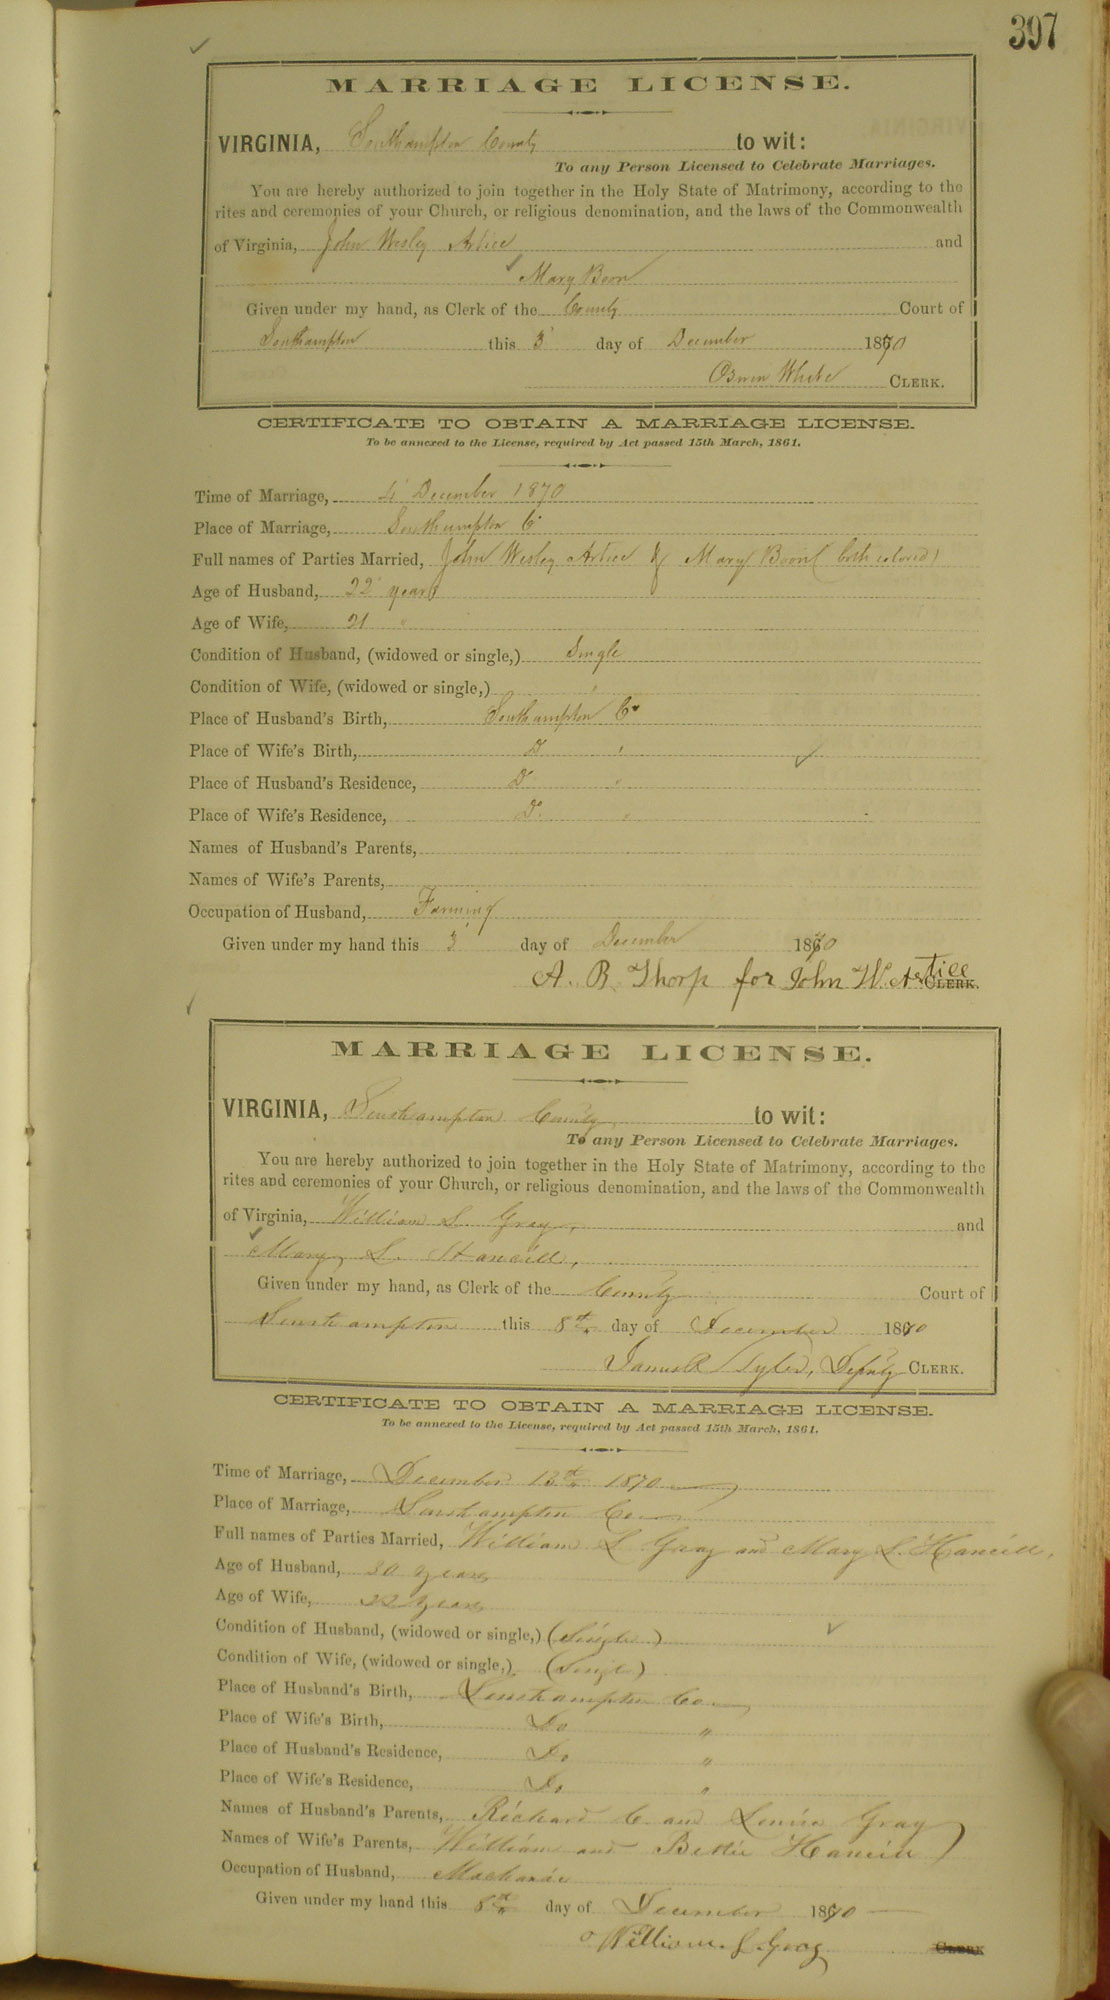 397
MARRIAGE LICENSE.
VIRGINIA, Southampton County to wit:
To any Person Licensed to Celebrate Marriages.
You are hereby authorized to join together in the Holy State of Matrimony, according to the
rites and ceremonies of your Church, or religious denomination, and the laws of the Commonwealth
of Virginia, John Wesley Artice and
Mary Boon
Given under my hand, as Clerk of the County Court of
Southampton this 3 day of December 1870
White CLERK.
CERTIFICATE TO OBTAIN A MARRIAGE LICENSE.
To be annexed to the License, required by Act passed 15th March, 1861.
Time of Marriage, 4 December 1870
Place of Marriage, Southampton Co
Full names of Parties Married, John Wesley Artice & Mary Boon (both colored)
Age of Husband, 22 years
Age of Wife, 21 "
Condition of Husband, (widowed or single,) Single
Condition of Wife, (widowed or single,) "
Place of Husband's Birth, Southampton Co
Place of Wife's Birth, Do "
Place of Husband's Residence, Do "
Place of Wife's Residence, Do "
Names of Husband's Parents,
Names of Wife's Parents,
Occupation of Husband, Farming
Given under my hand this 3 day of December 1870
A. B. Thorp for John W. Artice CLERK.
MARRIAGE LICENSE.
VIRGINIA, Southampton County to wit:
To any Person Licensed to Celebrate Marriages.
You are hereby authorized to join together in the Holy State of Matrimony, according to the
rites and ceremonies of your Church, or religious denomination, and the laws of the Commonwealth
of Virginia, William L. Gray, and
Mary L. Hancill,
Given under my hand, as Clerk of the County Court of
Southampton this 8th day of December 1870
James R Tyler, Deputy CLERK.
CERTIFICATE TO OBTAIN A MARRIAGE LICENSE.
To be annexed to the License, required by Act passed 15th March, 1861.
Time of Marriage, December 13th 1870
Place of Marriage, Southampton Co
Full names of Parties Married, William L Gray and Mary L. Hancill,
Age of Husband, 30 years
Age of Wife, 22 years
Condition of Husband, (widowed or single,) (Single)
Condition of Wife, (widowed or single,) (Single)
Place of Husband's Birth, Southampton Co
Place of Wife's Birth, Do "
Place of Husband's Residence, Do "
Place of Wife's Residence, Do "
Names of Husband's Parents, Richard C. and Louisa Gray
Names of Wife's Parents, William and Bettie Hancill
Occupation of Husband, Machanic
Given under my hand this 8th day of December 1870
William. L. Gray CLERK